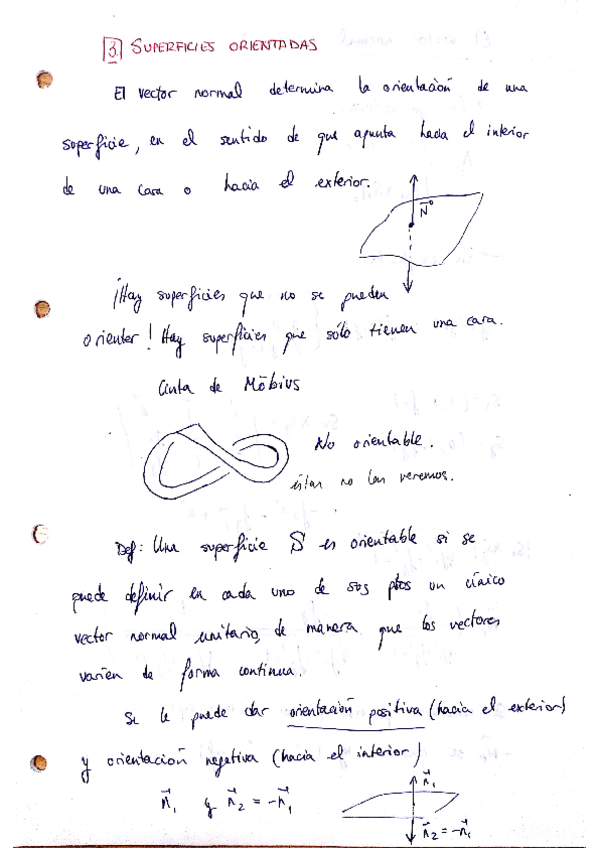 3. SUPERFICIES ORIENTADAS
El vector normal determina la orientación de una
superficie, en el sentido de que apunta hacia el interior
de una cara o hacia el exterior.
N
¡Hay superficies que no se pueden
orienter! Hay superficies que sólo tienen una cara.
Cinta de Möbius
No orientable.
éstas no las veremos.
Def: Una superficie S es orientable si se
puede definir en cada uno de sus ptos un único
vector normal unitario, de manera que los vectores
varíen de forma continua.
Se le puede dar orientación positiva (hacia el exterior)
y orientación negativa (hacia el interior)
n⃗₁ y n⃗₂ = -n⃗₁
n⃗₁
n⃗₂ = -n⃗₁